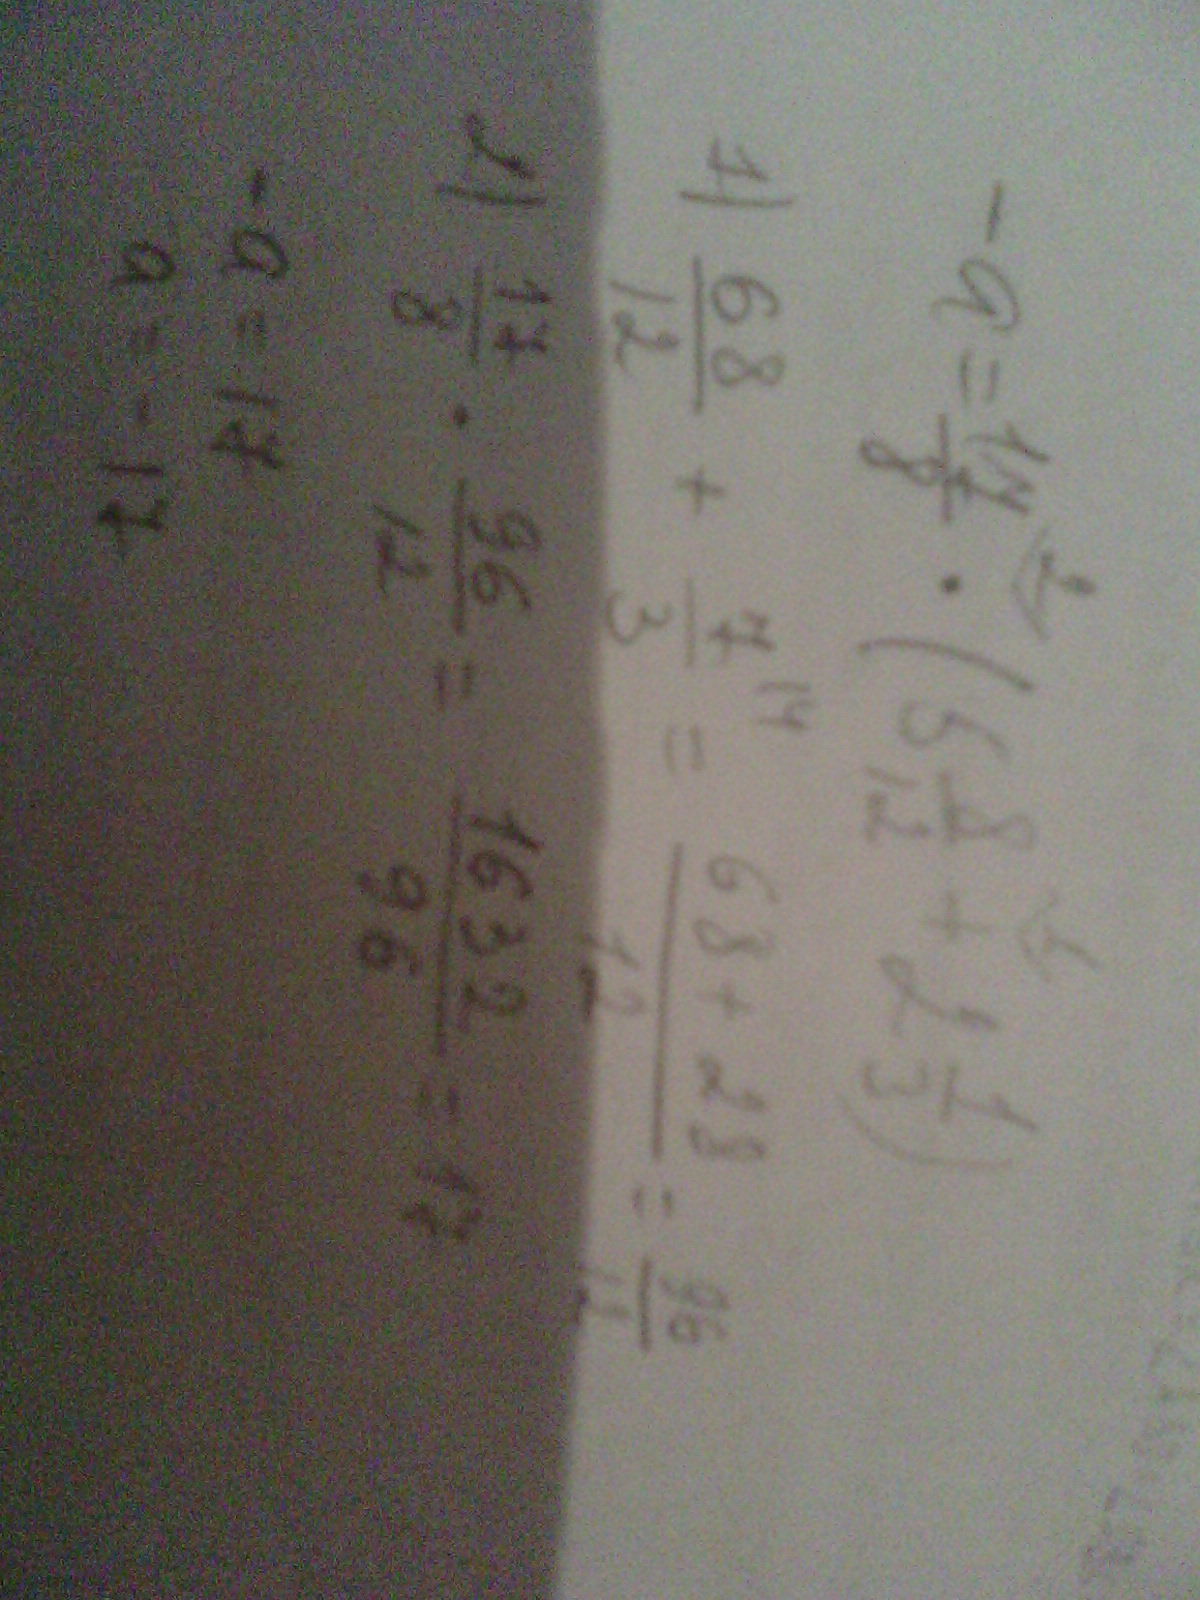 -a = 17/8 · (5 8/12 + 2 1/3)
2 1
1) 68/12 + 7/3 14 = 68+28/12 = 96/12
2) 17/8 · 96/12 = 1632/96 = 17
-a = 17
a = -17